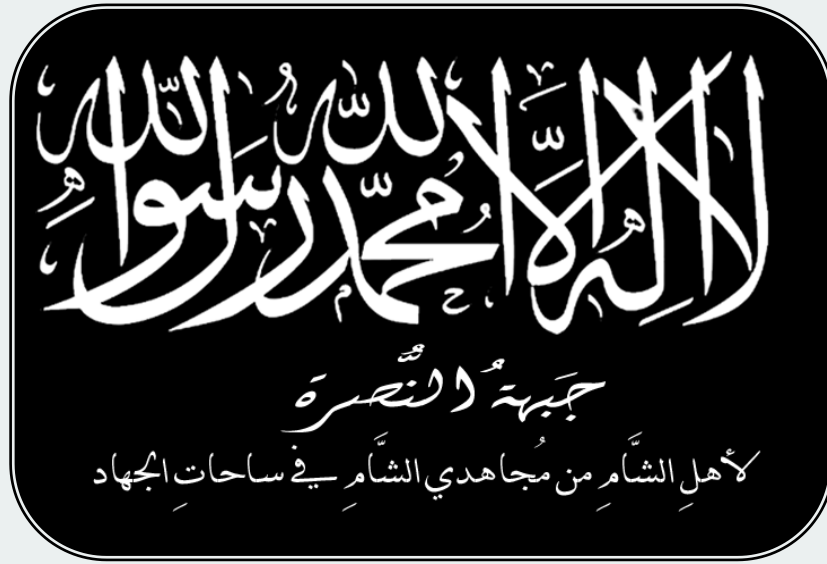 لا إله إلا الله محمد رسول الله
جَبهةُ النُّصرَة
لأهلِ الشَّامِ من مُجاهدي الشَّامِ في ساحاتِ الجهاد